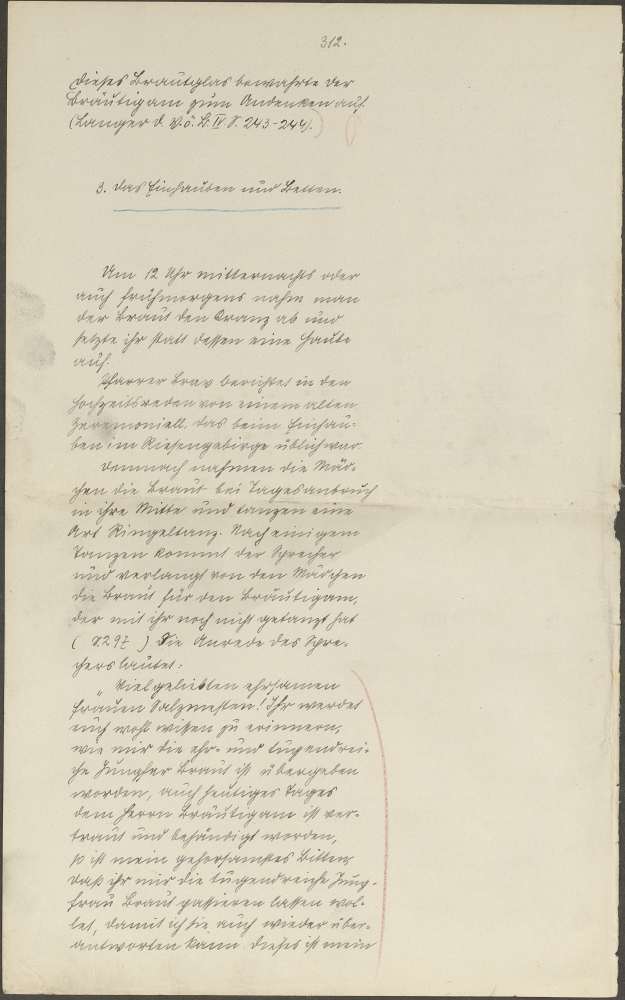 312.
Dieses Brautglas bewahrte der
Bräutigam zum Andenken auf.
(Langer d. V. ö. B. IV S. 243-244).
3. Das Einhauben und Betten.
Um 12 Uhr mitternachts oder
auch frühmorgens nahm man
der Braut den Kranz ab und
setzte ihr statt dessen eine Haube
auf.
Pfarrer berichtet in den
Hochzeitsreden von einem alten
Zeremoniell, das beim Einhau-
ben im Riesengebirge üblich war.
Demnach nahmen die Mäd-
chen die Braut bei Tagesanbruch
in ihre Mitte und tanzen eine
Art Ringeltanz. Nach einigem
Tanzen kommt der Sprecher
und verlangt von den Mädchen
die Braut für den Bräutigam,
der mit ihr noch nicht getanzt hat
( S297 ) Die Anrede des Spre-
chers lautet:
„Vielgeliebten ehrsamen
Frauen Salzmesten! Ihr werdet
euch wohl wissen zu erinnern,
wie mir die ehr- und tugendrei-
che Jungfer Braut ist übergeben
worden, auch heutiges Tages
dem Herrn Bräutigam ist ver-
traut und behändigt worden,
so ist mein gehorsamstes Bitten,
daß ihr mir die tugendreiche Jung-
frau Braut passieren lassen wol-
let, damit ich sie auch wieder über-
antworten kann. Dieses ist mein